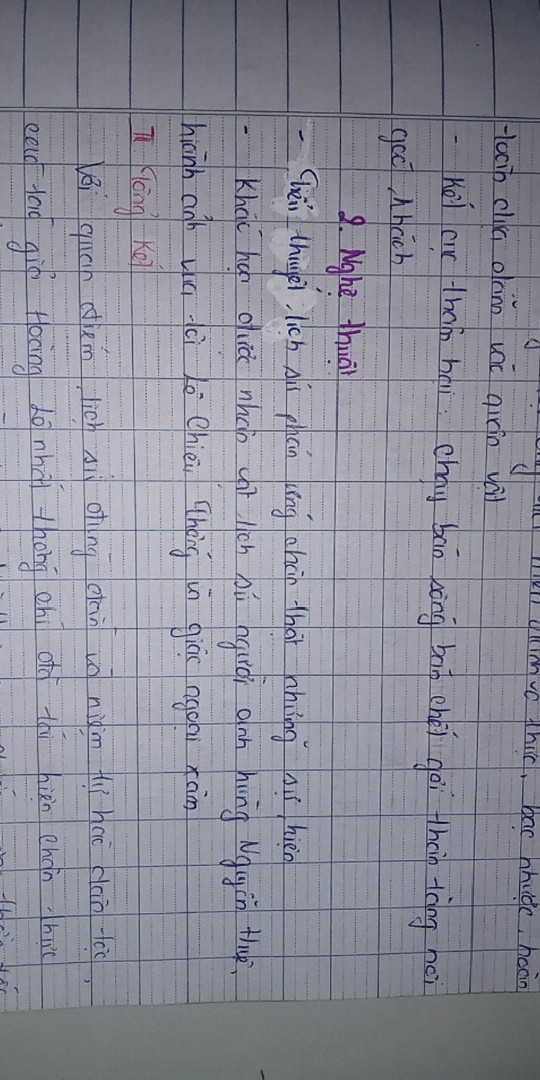 thực, bạc nhược, hoàn
toàn chịu đám và quân vật
- Kết cục thảm hại: Chạy bán sống bán chết gửi thân tàng nơi
đất khách
2. Nghệ thuật
- Tiểu thuyết lịch sử phản ứng chân thật những sự kiện
- Khắc họa được nhân vật lịch sử người anh hùng Nguyễn Huệ,
hình ảnh vua tôi Lê Chiêu Thống và giặc ngoại xâm
II Tổng Kết
Với quan điểm lịch sử đúng đắn và niềm tự hào dân tộc,
các tác giả Hoàng Lê nhất thống chí đã tái hiện chân thực